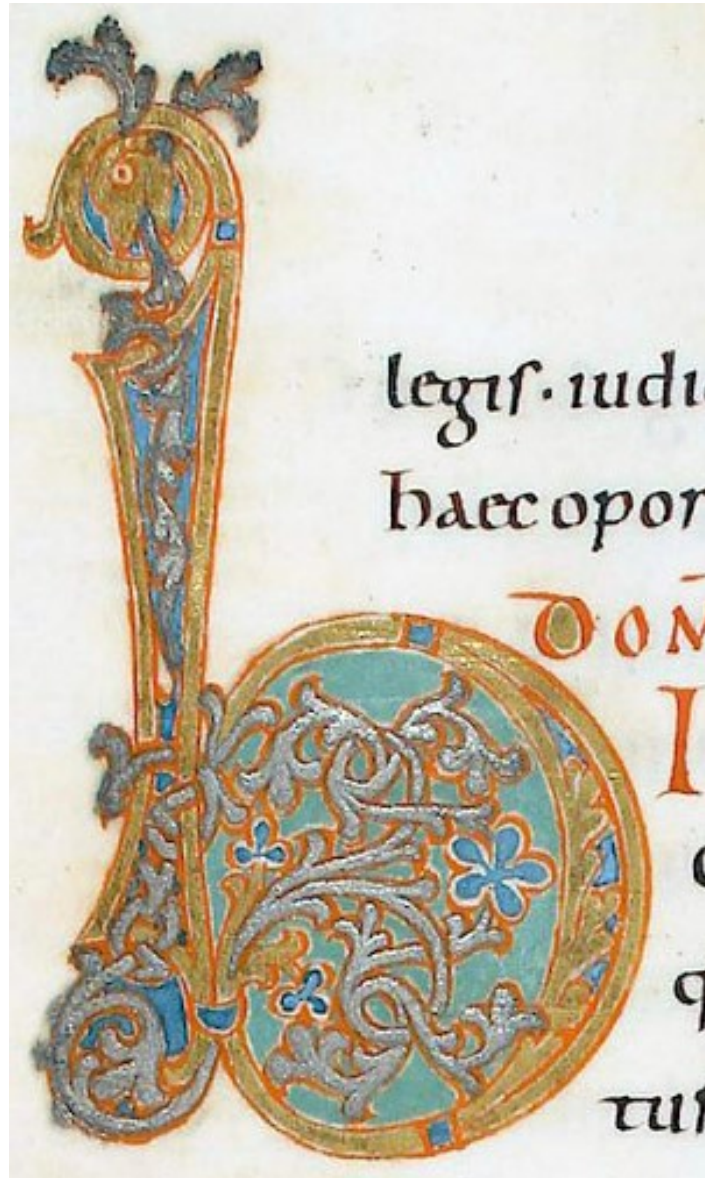 legis · iudi
haec opor
DOM
I
tus